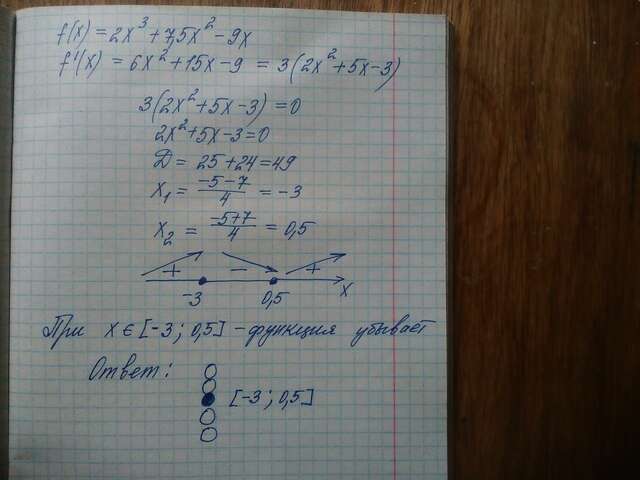 f(x) = 2x³ + 7,5x² - 9x
f'(x) = 6x² + 15x - 9 = 3(2x² + 5x - 3)
3(2x² + 5x - 3) = 0
2x² + 5x - 3 = 0
D = 25 + 24 = 49
x₁ = (-5 - 7)/4 = -3
x₂ = (-5 + 7)/4 = 0,5
+ - +
-3 0,5 x
При x ∈ [-3 ; 0,5] - функция убывает
Ответ:
[-3 ; 0,5]